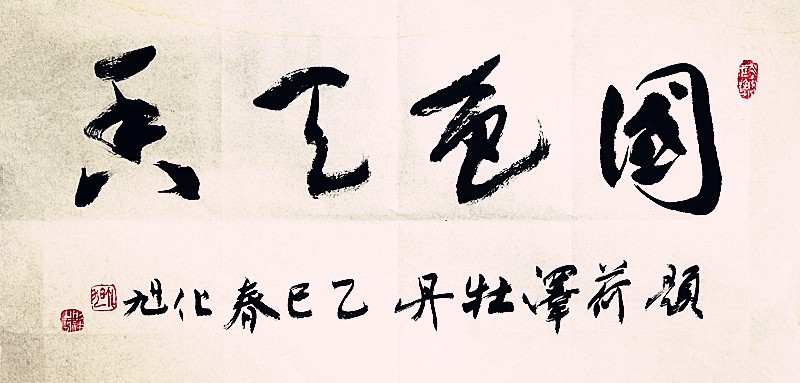 國色天香
題荷澤牡丹乙巳春化旭